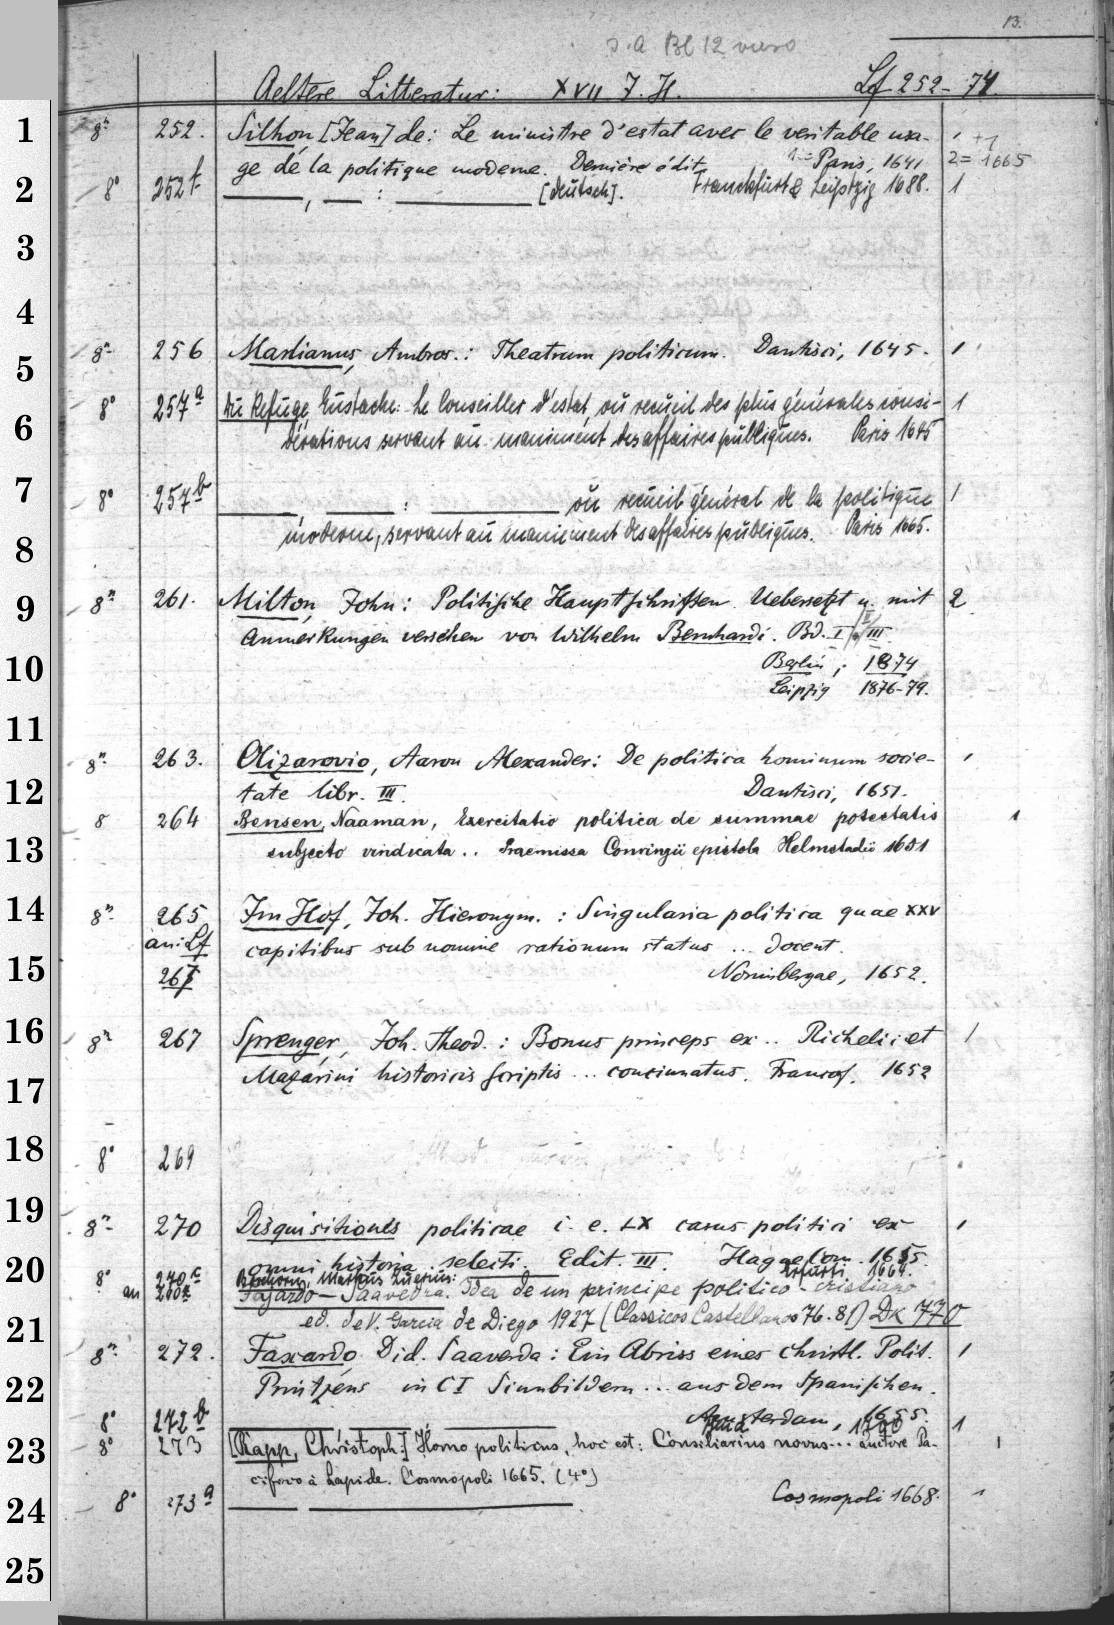 13.
s. a Bl 12 verso
Aeltere Litteratur: XVII J. H. Lf 252-74.
1 8° 252. Silhon [Jean] de: Le ministre d'estat avec le veritable usa- 1 +1
ge de la politique moderne. Dernière édit. Paris, 1641 2 = 1665
2 8° 252f ——, — : —— [deutsch]. Franckfurt & Leipzig 1688. 1
3
4
5 8° 256 Marlianus, Ambros.: Theatrum politicum. Dantisci, 1645. 1
6 8° 257a Du Refuge, Eustache: Le Conseiller d'estat, où recueil des plus générales consi- 1
dérations servant au maniment des affaires publiques. Paris 1645
7 8° 257b ——, —— : —— où recueil général de la politique 1
8 moderne, servant au maniement des affaires publiques. Paris 1665.
9 8° 261. Milton, John: Politische Hauptschriften. Uebersetzt u. mit 2
Anmerkungen versehen von Wilhelm Bernhardi. Bd. I/III
10 Berlin, 1874
Leipzig 1876-79.
11
8° 263. Olizarovio, Aaron Alexander: De politica hominum socie- 1
12 tate libr. III. Dantisci, 1651.
8 264 Bensen, Naaman, Exercitatio politica de summae potestatis 1
13 subjecto vindicata .. Praemissa Conringii epistola Helmstadii 1651
14 8° 265 Im Hof, Joh. Hieronym. : Singularia politica quae XXV
an: Lf capitibus sub nomine rationum status ... docent.
15 267 Norinbergae, 1652.
16 8° 267 Sprenger, Joh. Theod. : Bonus princeps ex .. Richelii et 1
17 Mazarini historicis scriptis ... concinnatus. Francof. 1652
18 8° 269
19 8° 270 Disquisitiones politicae i. e. LX casus politici ex 1
20 omni historia selecti. Edit. III. Hagae Com. 1655.
8° 270c 1664.
an Fajardo — Saavedra. Idea de un principe politico-cristiano
21 ed. de V. Garcia de Diego 1927 (Classicos Castellanos 76. 81) Dk 770
8° 272. Faxardo, Did. Saaverda: Ein Abriss eines christl. Polit. 1
22 Printzens in CI Sinnbildern ... aus dem Spanischen.
Amsterdam, 1655.
8° 272b —— 1
23 8° 273 [Rapp, Christoph:] Homo politicus, hoc est: Consiliarius novus... auctore Pa- 1
cifico à Lapide. Cosmopoli 1665. (4°)
24 8° 273a —— —— Cosmopoli 1668. 1
25